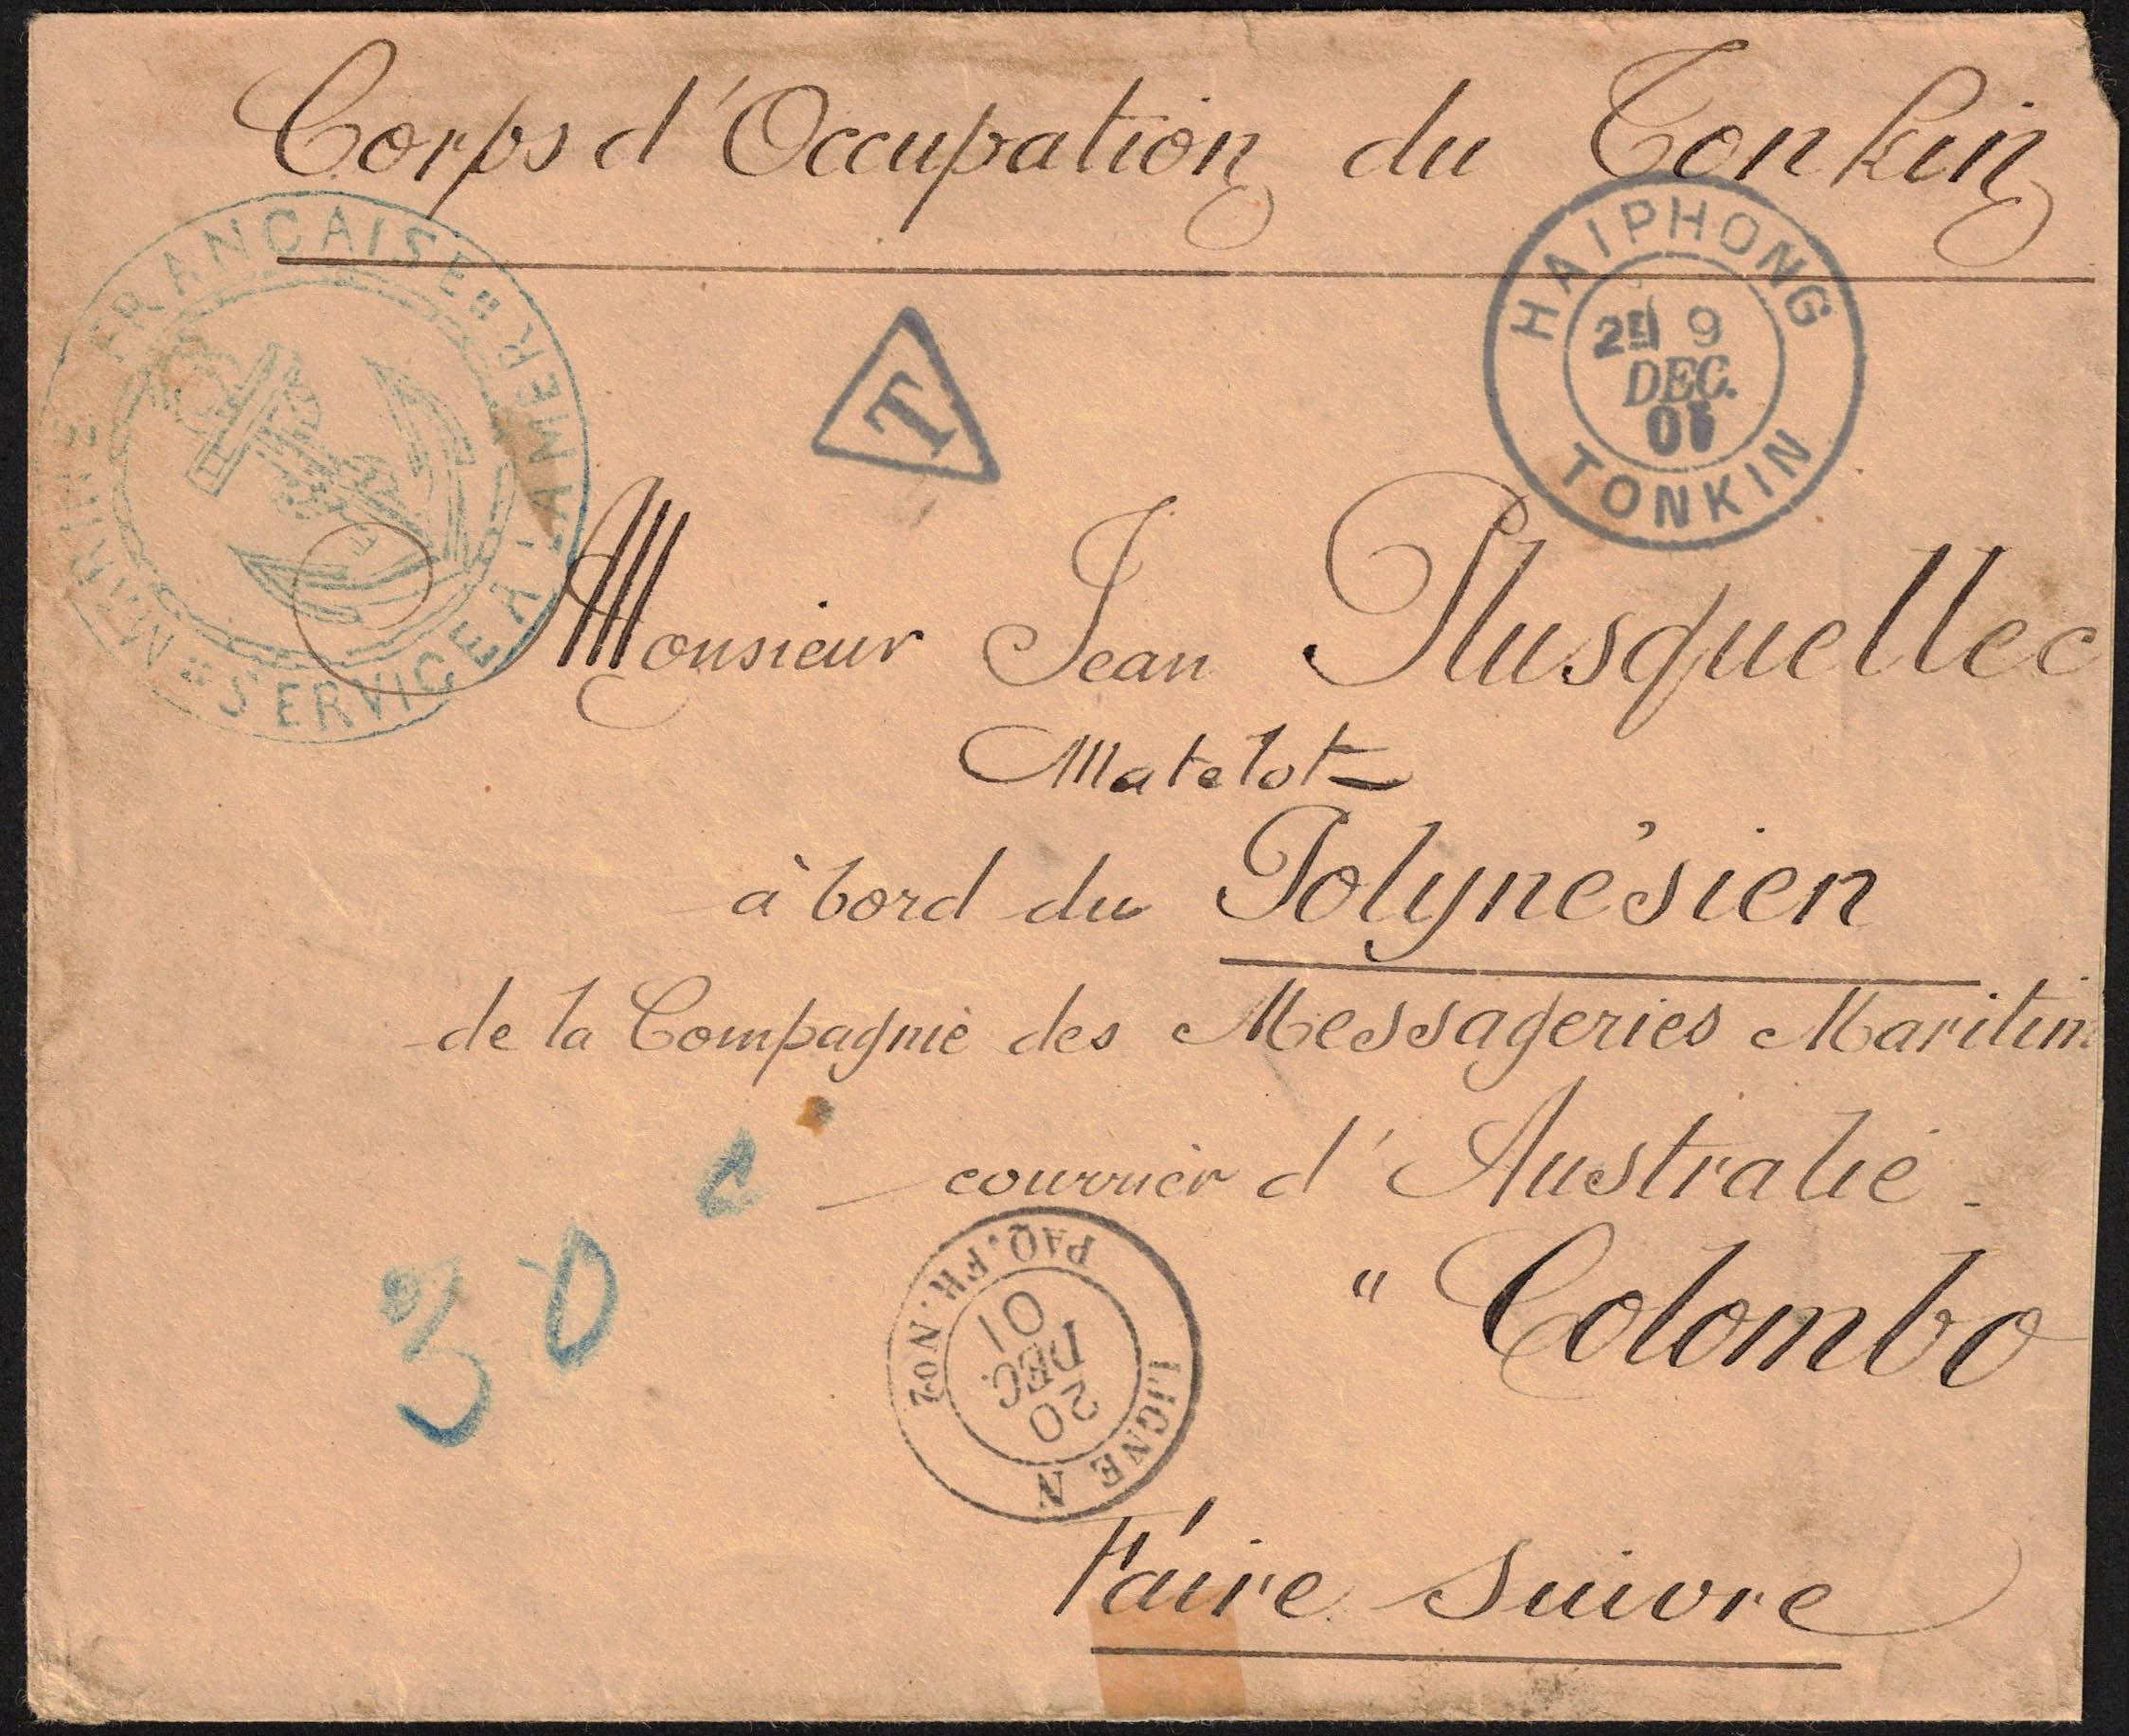 Corps d'Occupation du Tonkin
MARINE FRANÇAISE "SERVICE À LA MER"
HAIPHONG
2E 9
DEC.
01
TONKIN
T
Monsieur Jean Plusquellec
Matelot
à bord du Polynésien
de la Compagnie des Messageries Maritim
courrier d'Australie
" Colombo
30 c
LIGNE N
PAQ. FR. No 2
20
DEC
01
Faire suivre